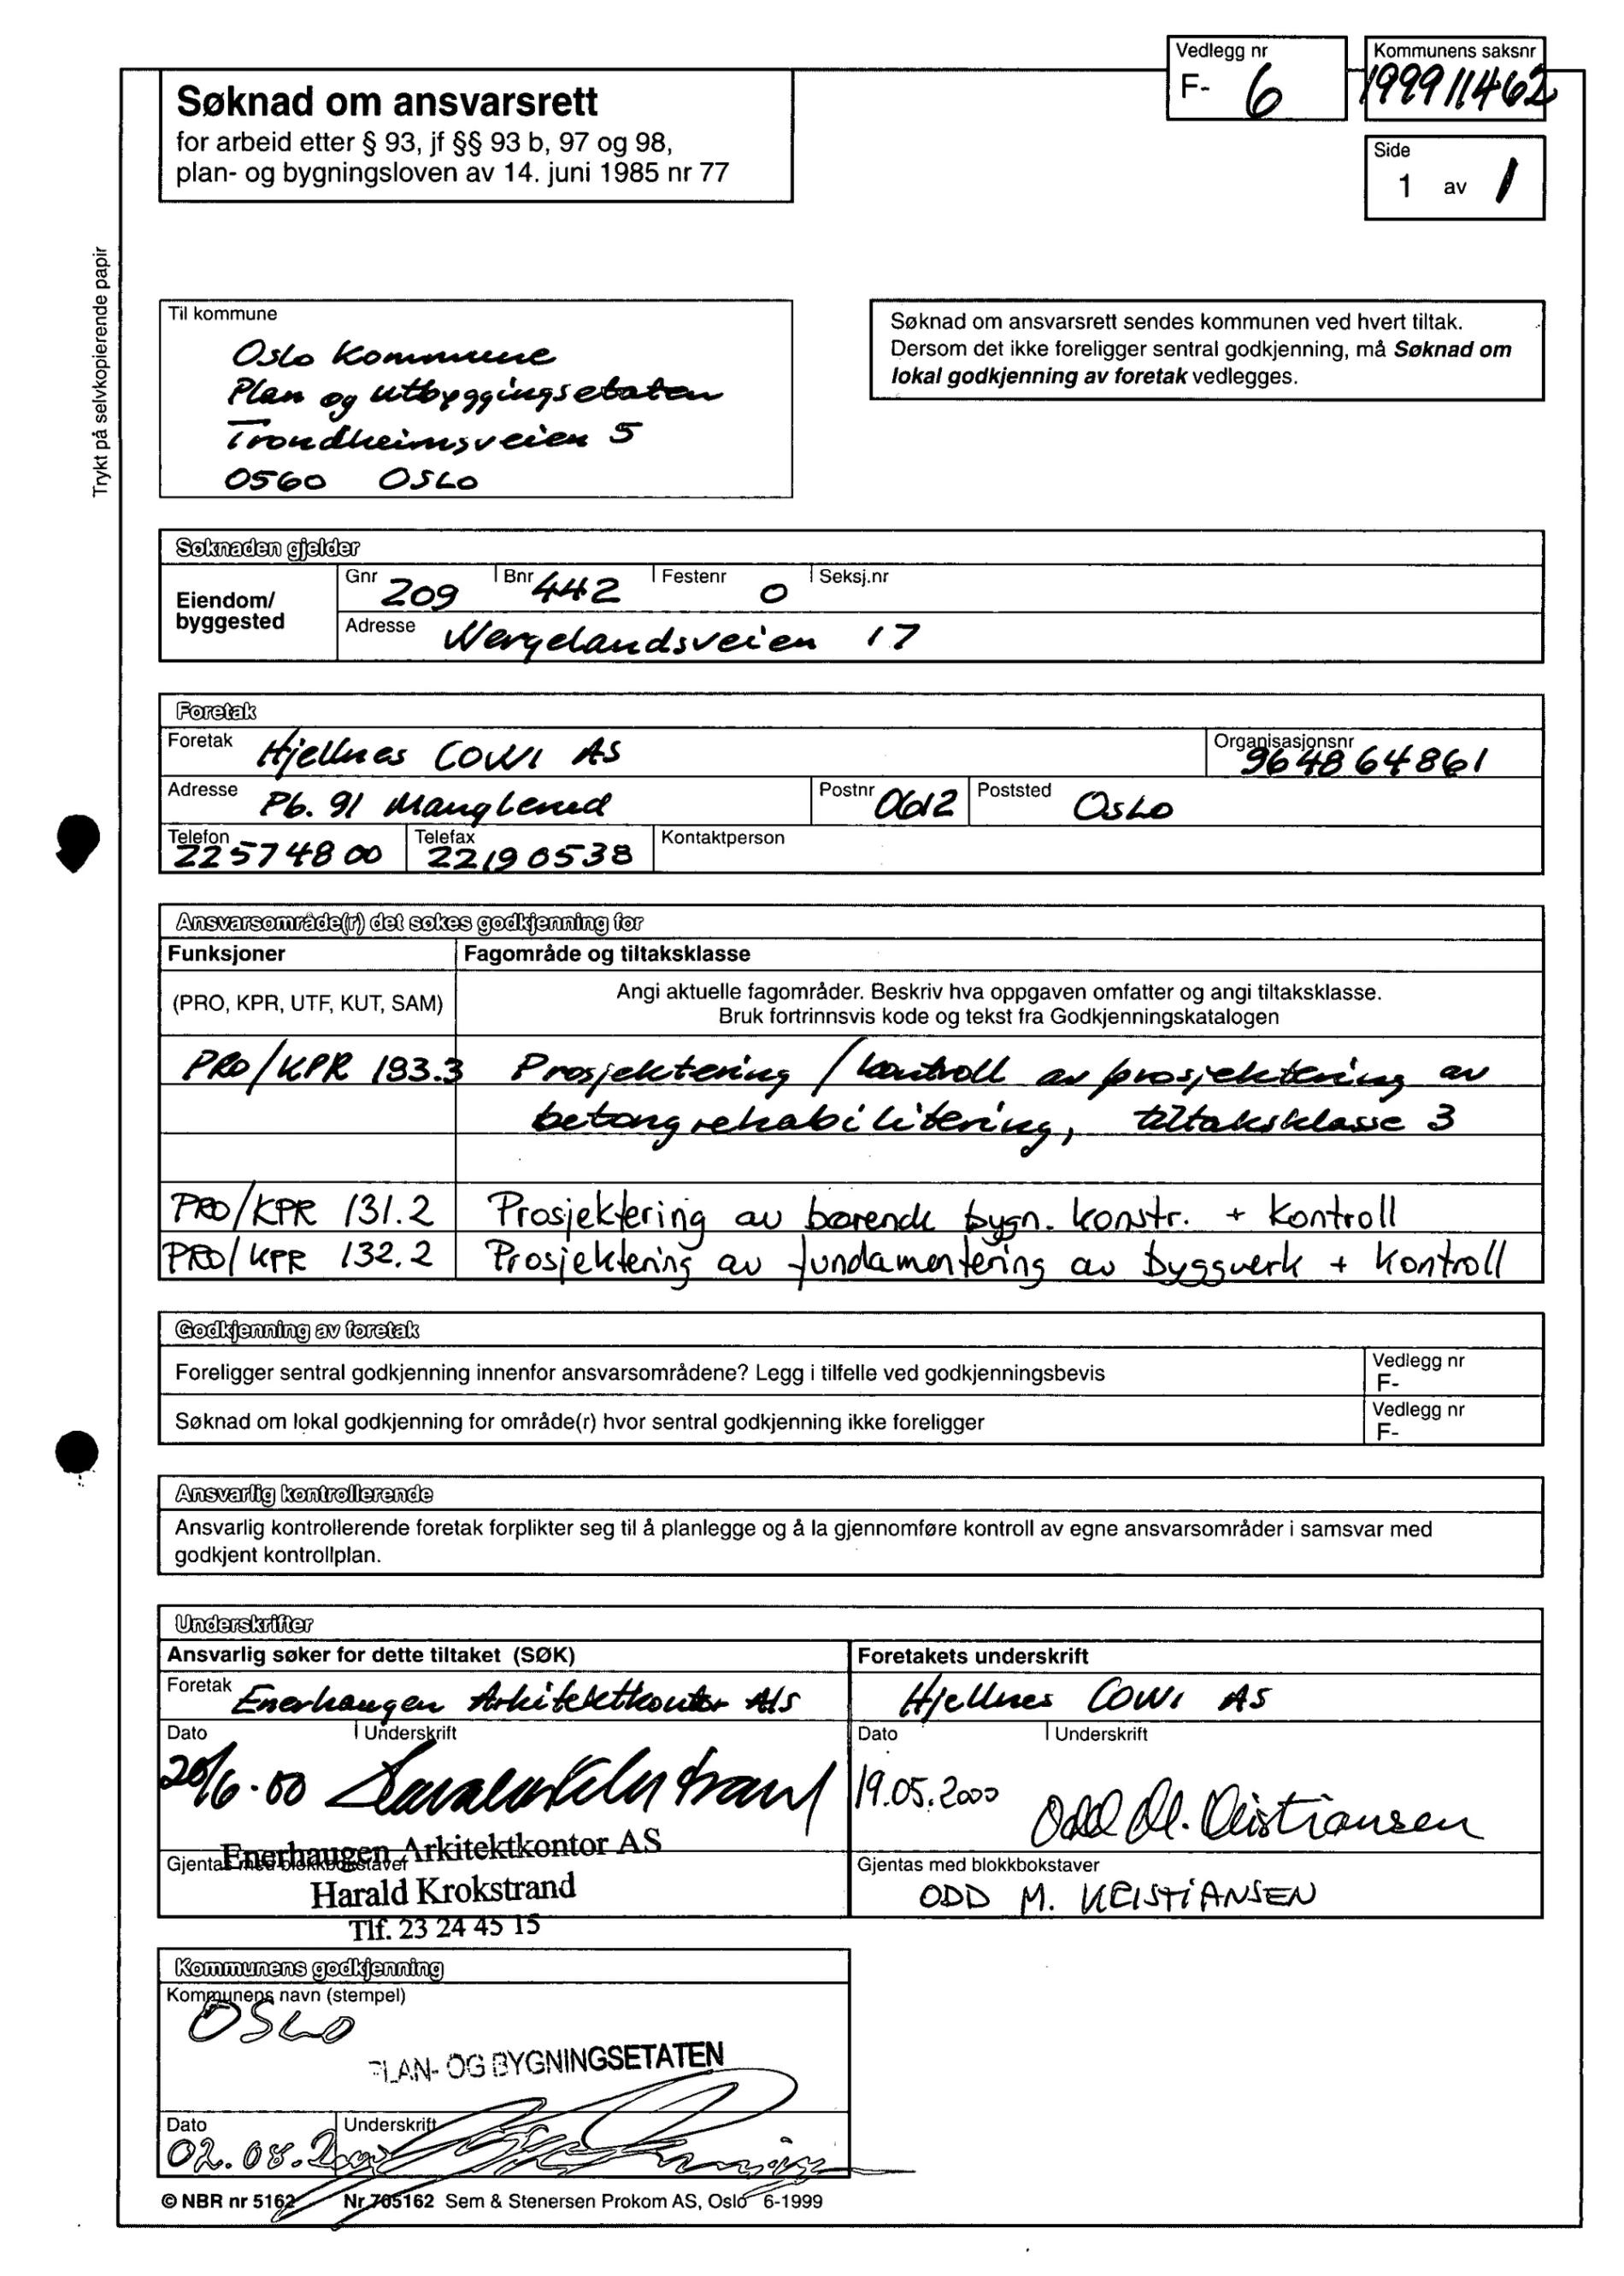 Vedlegg nr
F- 6
Kommunens saksnr
199911462
Søknad om ansvarsrett
for arbeid etter § 93, jf §§ 93 b, 97 og 98,
plan- og bygningsloven av 14. juni 1985 nr 77
Side
1 av 1
Trykt på selvkopierende papir
Til kommune
Oslo Kommune
Plan og utbyggingsetaten
Trondheimsveien 5
0560 OSLO
Søknad om ansvarsrett sendes kommunen ved hvert tiltak.
Dersom det ikke foreligger sentral godkjenning, må Søknad om
lokal godkjenning av foretak vedlegges.
Søknaden gjelder
Eiendom/
byggested
Gnr 209 Bnr 442 Festenr 0 Seksj.nr
Adresse Wergelandsveien 17
Foretak
Foretak Hjellnes COWI AS
Organisasjonsnr
964864861
Adresse Pb. 91 Manglerud Postnr 0612 Poststed OSLO
Telefon Telefax Kontaktperson
22574800 22190538
Ansvarsområde(r) det søkes godkjenning for
Funksjoner Fagområde og tiltaksklasse
(PRO, KPR, UTF, KUT, SAM)
Angi aktuelle fagområder. Beskriv hva oppgaven omfatter og angi tiltaksklasse.
Bruk fortrinnsvis kode og tekst fra Godkjenningskatalogen
PRO/KPR 183.3 Prosjektering / kontroll av prosjektering av
betongrehabilitering, tiltaksklasse 3
PRO/KPR 131.2 Prosjektering av bærende bygn. konstr. + kontroll
PRO/KPR 132.2 Prosjektering av fundamentering av byggverk + kontroll
Godkjenning av foretak
Foreligger sentral godkjenning innenfor ansvarsområdene? Legg i tilfelle ved godkjenningsbevis
Vedlegg nr
F-
Søknad om lokal godkjenning for område(r) hvor sentral godkjenning ikke foreligger
Vedlegg nr
F-
Ansvarlig kontrollerende
Ansvarlig kontrollerende foretak forplikter seg til å planlegge og å la gjennomføre kontroll av egne ansvarsområder i samsvar med
godkjent kontrollplan.
Underskrifter
Ansvarlig søker for dette tiltaket (SØK)
Foretak Enerhaugen Arkitektkontor A/S
Dato Underskrift
20/6-00 Harald Krokstrand
Enerhaugen Arkitektkontor AS
Gjentas med blokkbokstaver
Harald Krokstrand
Tlf. 23 24 45 15
Foretakets underskrift
Hjellnes COWI AS
Dato Underskrift
19.05.2000 Odd M. Kristiansen
Gjentas med blokkbokstaver
ODD M. KRISTIANSEN
Kommunens godkjenning
Kommunens navn (stempel)
OSLO
PLAN- OG BYGNINGSETATEN
Dato Underskrift
02.08.2000
© NBR nr 5162 Nr 705162 Sem & Stenersen Prokom AS, Oslo 6-1999